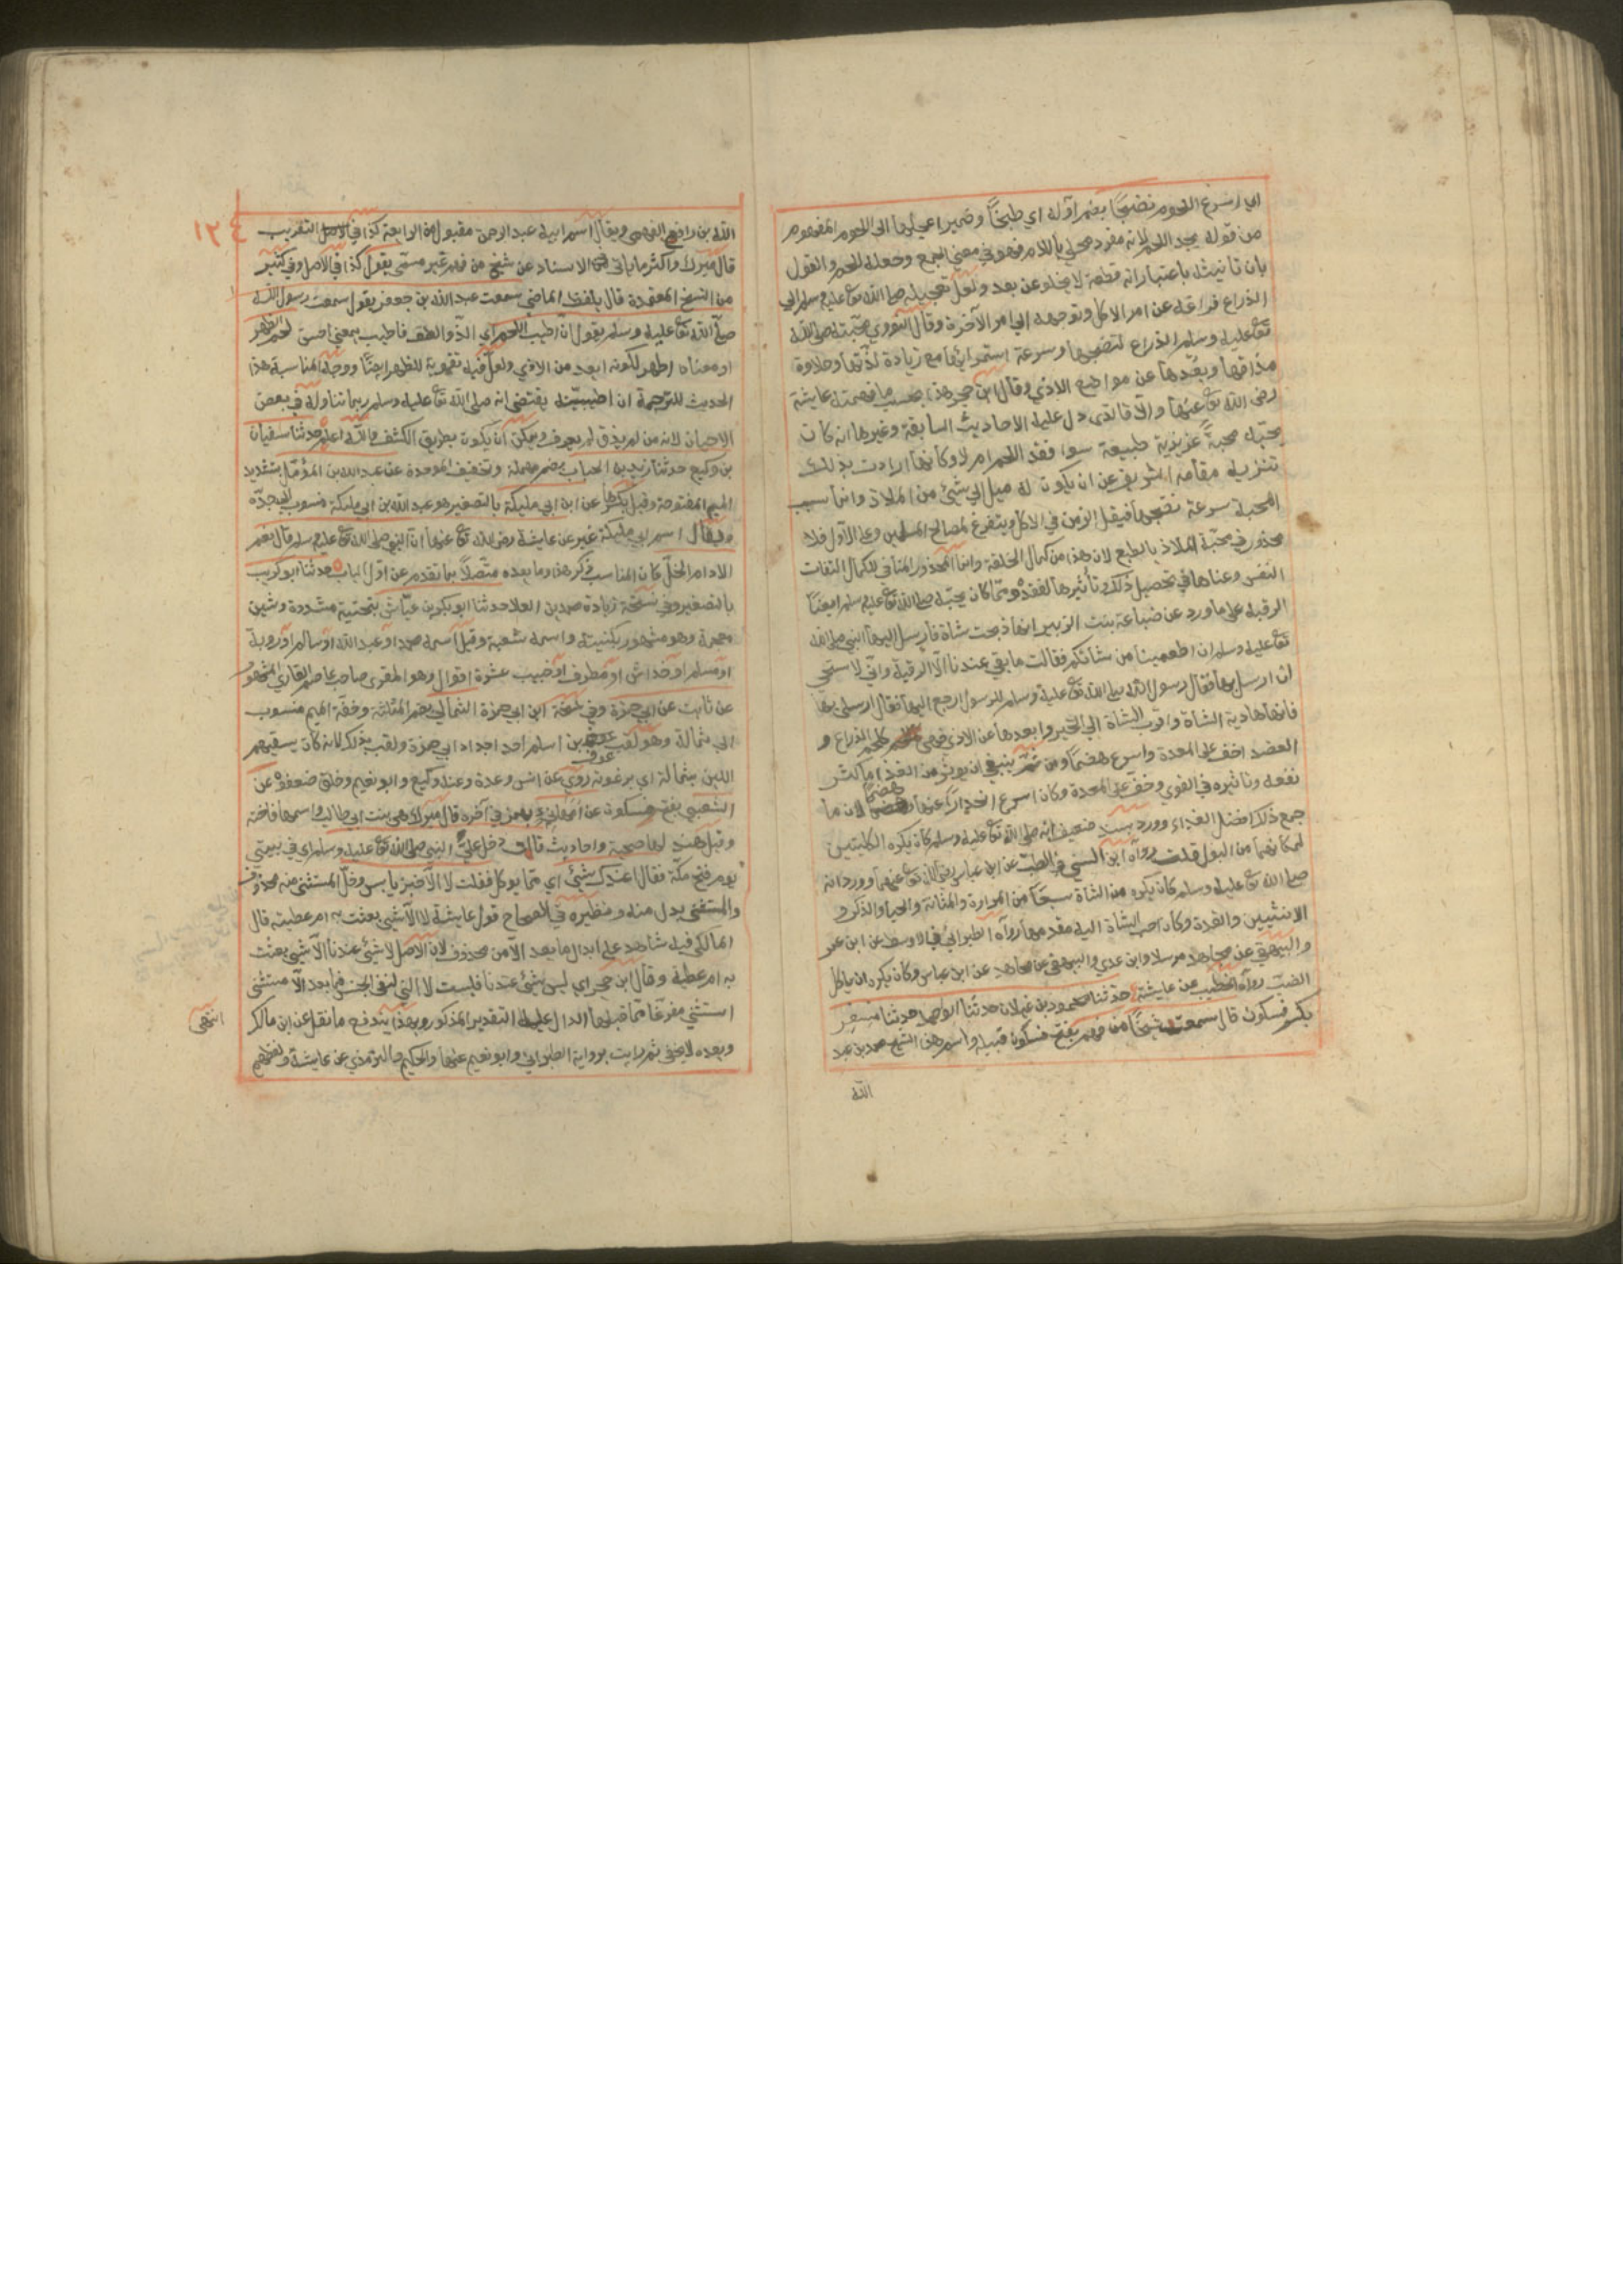 اي اسرع اللحوم نضجا بضم اوله اي طبخا وضمير اعجلها الى اللحوم المفهوم
من قوله يجد اللحم لانه مفرد محلى باللام فهو في معنى الجمع وجعله للحم والقول
بان تانيثه باعتبار انه قطعة لا يخلو عن بعد ولعل تعجيله صلى الله تع عليه وسلم الى
الذراع فراغه عن امر الاكل وتوجهه الى امر الآخرة وقال النووي محبته صلى الله
تع عليه وسلم الذراع لنضجها وسرعة استمرائها مع زيادة لذتها وحلاوة
مذاقها وبعدها عن مواضع الاذى وقال ابن حجر هذا بحسب ما فهمته عايشة
رضى الله تع عنها والا فالذى دل عليه الاحاديث السابقة وغيرها انه كان
يحبه محبة غريزية طبيعة سوا فقد اللحم ام لا وكانها ارادت بذلك
تنزيه مقامه الشريف عن ان يكون له ميل الى شئ من الملاذ وانما سبب
المحبة سرعة نضجها فيقل الزمن في الاكل ويتفرغ لمصالح المسلمين وعلى الاول فلا
محذور في محبة الملاذ بالطبع لان هذا من كمال الخلقة وانما المحذور المنافي للكمال التفات
النفس وعناها في تحصيل ذلك وتأثيرها لفقده ومما كان يحبه صلى الله تع عليه وسلم ايضا
الرقبة على ما ورد عن ضباعة بنت الزبير انها ذبحت شاة فارسل اليها النبي صلى الله
تع عليه وسلم ان اطعمينا من شاتكم فقالت ما بقي عندنا الا الرقبة واني لاستحي
ان ارسل بها فقال رسول الله صلى الله تع عليه وسلم للرسول ارجع اليها فقال ارسلي بها
فانها هادية الشاة واقرب الشاة الى الخير وابعدها عن الاذى فهي كلحم الذراع و
العضد اخف على المعدة واسرع هضما ومن ثم ينبغي ان يوثر من الغذا ما كثر
نفعه وتاثيره في القوى وخف على المعدة وكان اسرع انحدارا عنها وهضما لان ما
جمع ذلك افضل الغذاء وورد بسند ضعيف انه صلى الله تع عليه وسلم كان يكره الكليتين
لمكانهما من البول قلت رواه ابن السني في الطب عن ابن عباس رضى الله تع عنهما وورد انه
صلى الله تع عليه وسلم كان يكره من الشاة سبعا من المرارة والمثانة والحيا والذكر و
الانثيين والغدة وكان احب الشاة اليه مقدمها رواه الطبراني في الاوسط عن ابن عمر
والبيهقي عن مجاهد مرسلا وابن عدي والبيهقي عن مجاهد عن ابن عباس وكان يكره ان ياكل
الضب رواه الخطيب عن عايشة حدثنا محمود بن غيلان حدثنا ابو احمد حدثنا مسعر
بكسر فسكون قال سمعت شيخا من فهم بفتح فسكون قبيلة واسم هذا الشيخ محمد بن عبد
الله
١٢٤
الله بن رافع الفهمي ويقال اسم ابيه عبد الرحمن مقبول من الرابعة كذا في التقريب
قال ميرك واكثر ما ياتي في الاسناد عن شيخ من فهم غير مسمى يقول كذا في الاصل وفي كثير
من النسخ المعتمدة قال بلفظ الماضي سمعت عبد الله بن جعفر يقول سمعت رسول الله
صلى الله تع عليه وسلم يقول ان اطيب اللحم اي الذ والطف فاطيب بمعنى احسن لحم الظهر
او معناه اطهر لكونه ابعد من الاذى ولعل فيه تقوية للظهر ايضا ووجه المناسبة هذا
الحديث للترجمة ان اطيبيته يقتضى انه صلى الله تع عليه وسلم ربما تناوله في بعض
الاحيان لانه من لم يذق لم يعرف ويمكن ان يكون بطريق الكشف والله اعلم حدثنا سفيان
بن وكيع حدثنا زيد بن الحباب بضم مهملة وتخفيف الموحدة عن عبد الله بن المؤمل بتشديد
الميم المفتوحة وقيل بكسرها عن ابن ابي مليكة بالتصغير هو عبد الله بن ابي مليكة منسوب الى جده
ويقال اسم ابي مليكة غير عن عايشة رضى الله تع عنها ان النبي صلى الله تع عليه وسلم قال نعم
الادام الخل كان المناسب ذكر هذا وما بعده متصلا بما تقدم عن اول الباب حدثنا ابو كريب
بالتصغير وفي نسخة زيادة محمد بن العلا حدثنا ابو بكر بن عياش بتحتية مشددة وشين
معجمة وهو مشهور بكنيته واسمه شعبة وقيل اسمه محمد او عبد الله او سالم او روبة
او مسلم او خداش او مطرف او حبيب عشرة اقوال وهو المقرى صاحب عاصم القارى المشهور
عن ثابت عن ابي حمزة وفي نسخة ابن ابي حمزة الثمالي بضم المثلثة وخفة الميم منسوب
الى ثمالة وهو لقب عوف بن اسلم احد اجداد ابي حمزة ولقب بذلك لانه كان يسقيهم
اللبن بثمالة اي برغوته روى عن انس وعدة وعنه وكيع وابو نعيم وخلق ضعفوه عن
الشعبي بفتح فسكون عن ام هاني بهمز في آخره قال ميرك هي بنت ابي طالب واسمها فاختة
وقيل هند لها صحبة واحاديث قالت دخل علي النبي صلى الله تع عليه وسلم اي في بيتي
يوم فتح مكة فقال اعندك شئ اي مما يوكل فقلت لا الا خبز يابس وخل المستثنى منه محذوف
والمستثنى بدل منه ونظيره في الصحاح قول عايشة لا الا شئ بعثت به ام عطية قال
المالكي فيه شاهد على ابدال ما بعد الا من محذوف لان الاصل لا شئ عندنا الا شئ بعثت
به ام عطية وقال ابن حجر اي ليس شئ عندنا فليست لا التي لنفي الجنس فما بعد الا مستثنى
استثنى مفرغا مما قبلها الدال عليه التقدير المذكور وبهذا يندفع ما نقل عن ابن مالك
انتهى
وبعده لا يخفى ثم رايت برواية الطبراني وابو نعيم عنها والحكيم الترمذي عن عايشة ولفظهم